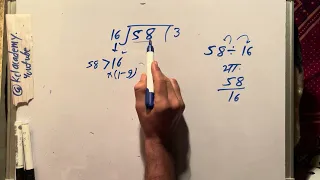 16)58(3
58>16
×(1-9)
58÷16
या
58
16
@kclacademy-
Youtube